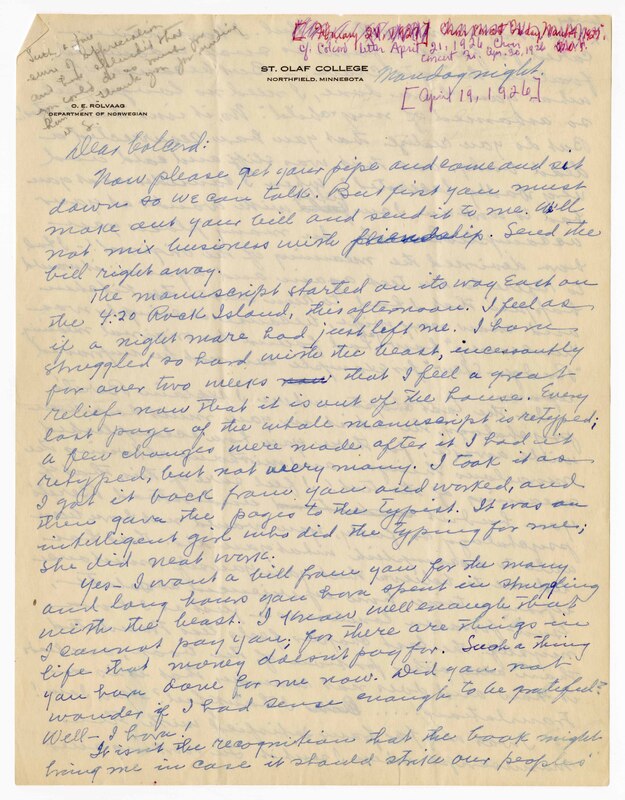 Such a fine
sense of appreciation
and how splendid that
you could do so much
[February 28, 1927] Choir
c/. Colcord letter April 21, 1926, Choir
concert Fri. Apr. 30, 1926
ST. OLAF COLLEGE
NORTHFIELD, MINNESOTA
Monday night.
[April 19, 1926]
O. E. ROLVAAG
DEPARTMENT OF NORWEGIAN
Dear Colcord:
Now please get your pipe and come and sit
down so we can talk. But first you must
make out your bill and send it to me. We'll
not mix business with friendship. Send the
bill right away.
The manuscript started on its way East on
the 4:20 Rock Island, this afternoon. I feel as
if a night mare had just left me. I have
struggled so hard with the beast, incessantly
for over two weeks now that I feel a great
relief now that it is out of the house. Every
last page of the whole manuscript is retyped;
a few changes were made after it I had it
retyped, but not very many. I took it as
I got it back from you and worked, and
then gave the pages to the typist. It was an
intelligent girl who did the typing for me;
she did neat work.
Yes – I want a bill from you for the many
and long hours you have spent in struggling
with the beast. I know well enough that
I cannot pay you; for there are things in
life that money doesn't pay for. Such a thing
you have done for me now. Did you not
wonder if I had sense enough to be grateful?
Well – I have!
It isn't the recognition that the book might
bring me in case it should strike our peoples'